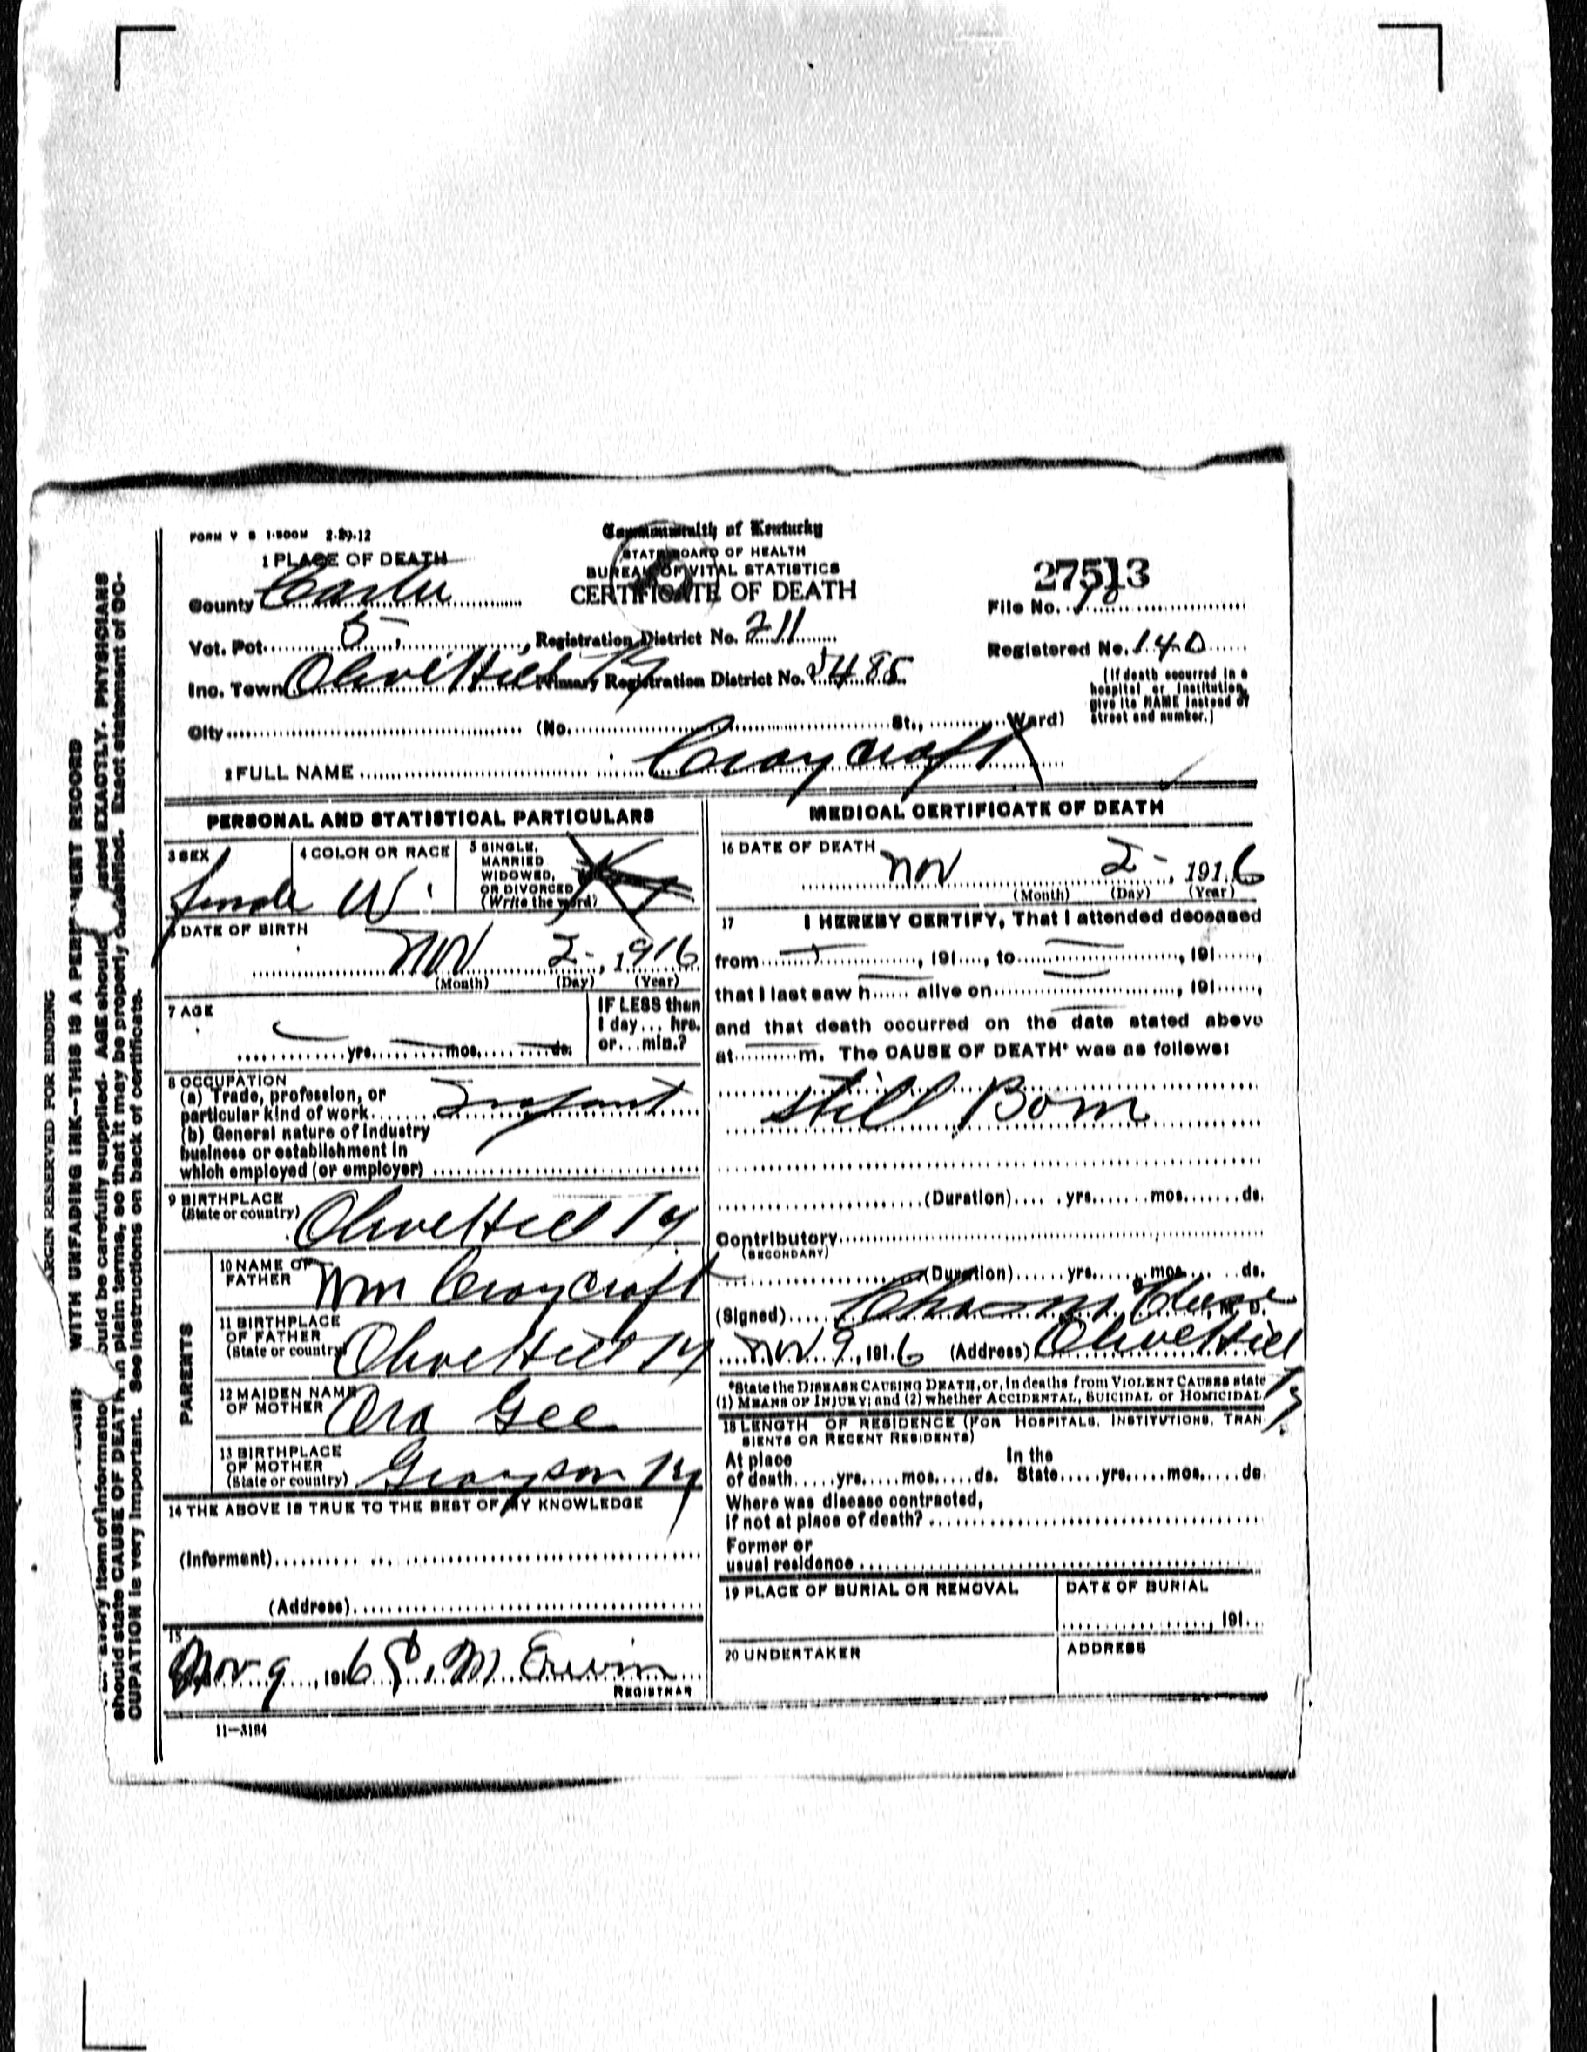 FORM V S 1-500M 2-29-12
Commonwealth of Kentucky
STATE BOARD OF HEALTH
BUREAU OF VITAL STATISTICS
CERTIFICATE OF DEATH
27513
1 PLACE OF DEATH
County Carter
File No.
Vot. Pct. 5, Registration District No. 211
Registered No. 140
Inc. Town Olive Hill Ky Primary Registration District No. 5485
(If death occurred in a hospital or institution, give its NAME instead of street and number.)
City (No. St., Ward)
2 FULL NAME Craycraft
PERSONAL AND STATISTICAL PARTICULARS
3 SEX female
4 COLOR OR RACE W.
5 SINGLE, MARRIED, WIDOWED, OR DIVORCED (Write the word)
6 DATE OF BIRTH
Nov 2-, 1916
(Month) (Day) (Year)
7 AGE
yrs. mos. ds.
IF LESS than 1 day... hrs. or...min.?
8 OCCUPATION
(a) Trade, profession, or
particular kind of work Infant
(b) General nature of industry
business or establishment in
which employed (or employer)
9 BIRTHPLACE
(State or country) Olive Hill Ky
PARENTS
10 NAME OF FATHER Wm Craycraft
11 BIRTHPLACE OF FATHER (State or country) Olive Hill Ky
12 MAIDEN NAME OF MOTHER Ora Gee
13 BIRTHPLACE OF MOTHER (State or country) Grayson Ky
14 THE ABOVE IS TRUE TO THE BEST OF MY KNOWLEDGE
(Informant)
(Address)
15
Nov 9, 1916 M Erwin
REGISTRAR
11—3184
MEDICAL CERTIFICATE OF DEATH
16 DATE OF DEATH
Nov 2-, 1916
(Month) (Day) (Year)
17 I HEREBY CERTIFY, That I attended deceased
from , 191 , to , 191 ,
that I last saw h alive on , 191 ,
and that death occurred on the date stated above
at m. The CAUSE OF DEATH* was as follows:
Still Born
(Duration) yrs. mos. ds.
Contributory
(SECONDARY)
(Duration) yrs. mos. ds.
(Signed) Chas M. D.
Nov 9, 1916 (Address) Olive Hill Ky
*State the DISEASE CAUSING DEATH, or, in deaths from VIOLENT CAUSES state
(1) MEANS OF INJURY; and (2) whether ACCIDENTAL, SUICIDAL or HOMICIDAL
18 LENGTH OF RESIDENCE (FOR HOSPITALS, INSTITUTIONS, TRAN
SIENTS OR RECENT RESIDENTS)
At place In the
of death yrs. mos. ds. State yrs. mos. ds.
Where was disease contracted,
if not at place of death?
Former or
usual residence
19 PLACE OF BURIAL OR REMOVAL
DATE OF BURIAL
, 191
20 UNDERTAKER
ADDRESS
MARGIN RESERVED FOR BINDING
WITH UNFADING INK—THIS IS A PERMANENT RECORD
every item of information should be carefully supplied. AGE should stated EXACTLY. PHYSICIANS
should state CAUSE OF DEATH in plain terms, so that it may be properly classified. Exact statement of OC-
CUPATION is very important. See instructions on back of certificate.